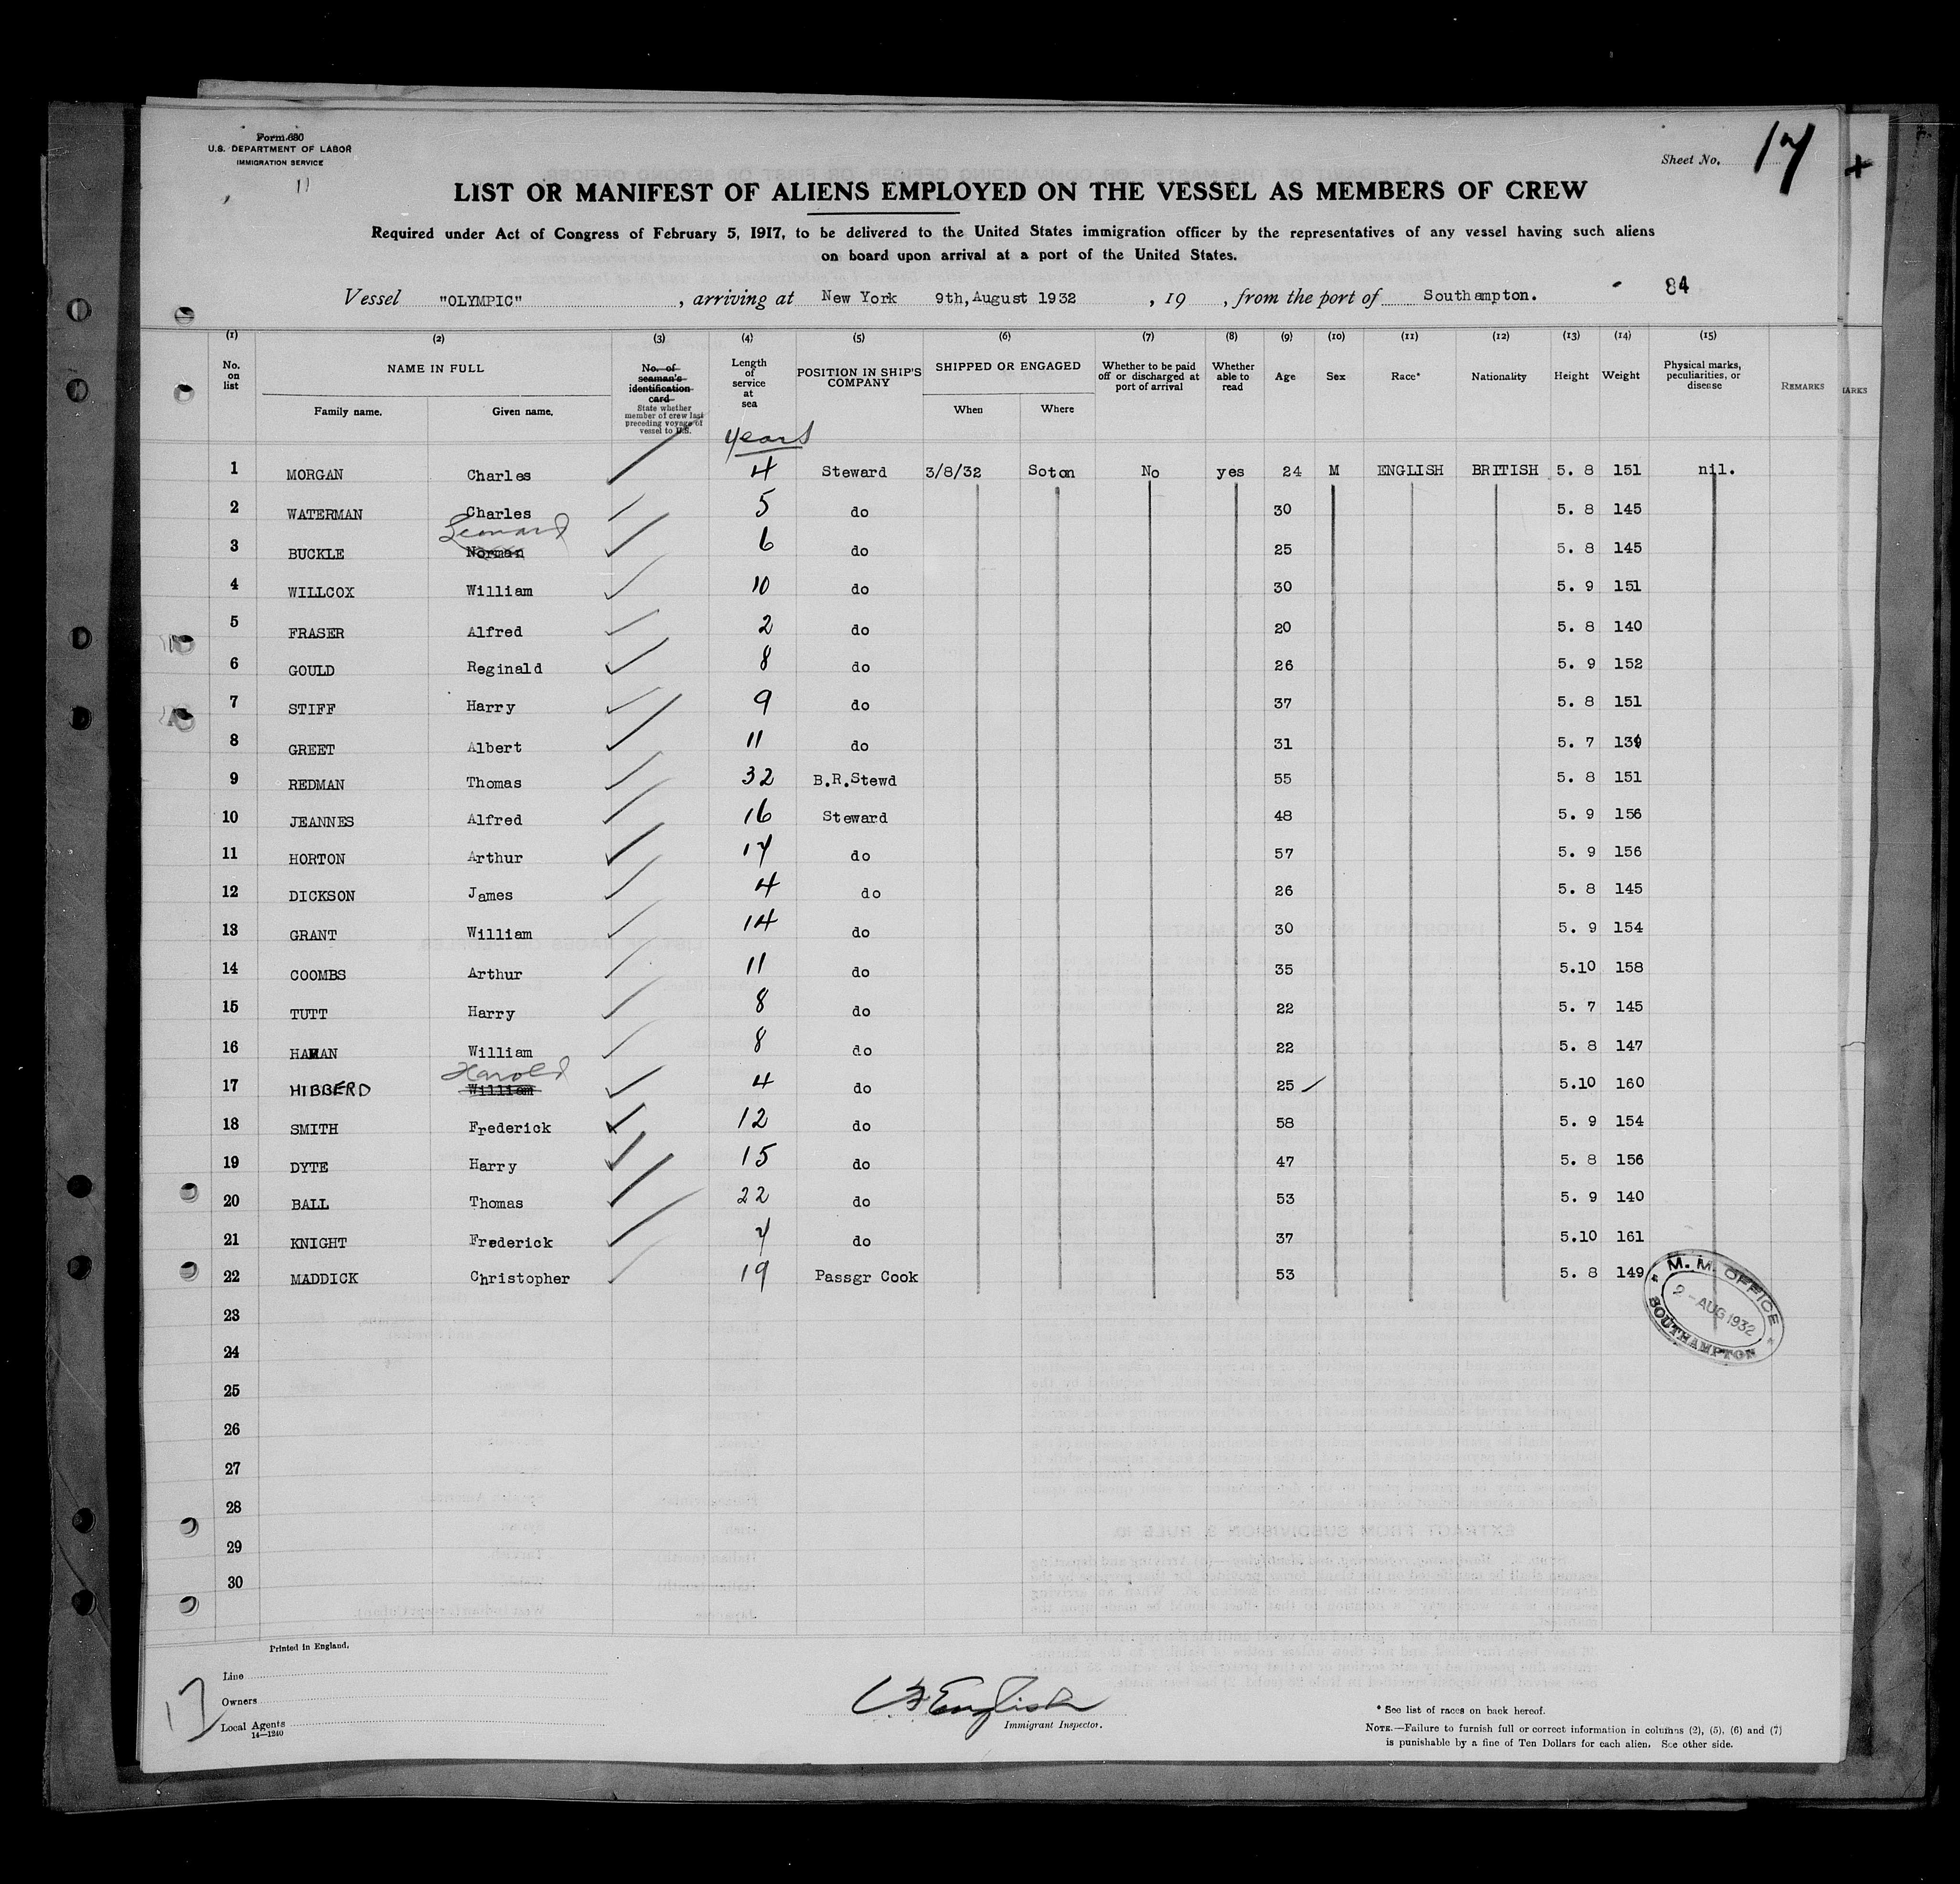 Form 680
U.S. DEPARTMENT OF LABOR
IMMIGRATION SERVICE
11
Sheet No. 17
LIST OR MANIFEST OF ALIENS EMPLOYED ON THE VESSEL AS MEMBERS OF CREW
Required under Act of Congress of February 5, 1917, to be delivered to the United States immigration officer by the representatives of any vessel having such aliens
on board upon arrival at a port of the United States.
84
Vessel "OLYMPIC", arriving at New York 9th, August 1932, 19 , from the port of Southampton.
(1) (2) (3) (4) (5) (6) (7) (8) (9) (10) (11) (12) (13) (14) (15)
No. on list NAME IN FULL No. of seaman's identification card State whether member of crew last preceding voyage of vessel to U.S. Length of service at sea POSITION IN SHIP'S COMPANY SHIPPED OR ENGAGED Whether to be paid off or discharged at port of arrival Whether able to read Age Sex Race* Nationality Height Weight Physical marks, peculiarities, or disease REMARKS ARKS
Family name. Given name. When Where
years
1 MORGAN Charles 4 Steward 3/8/32 Soton No yes 24 M ENGLISH BRITISH 5. 8 151 nil.
2 WATERMAN Charles 5 do 30 5. 8 145
Leonard
3 BUCKLE Norman 6 do 25 5. 8 145
4 WILLCOX William 10 do 30 5. 9 151
5 FRASER Alfred 2 do 20 5. 8 140
6 GOULD Reginald 8 do 26 5. 9 152
7 STIFF Harry 9 do 37 5. 8 151
8 GREET Albert 11 do 31 5. 7 139
9 REDMAN Thomas 32 B.R.Stewd 55 5. 8 151
10 JEANNES Alfred 16 Steward 48 5. 9 156
11 HORTON Arthur 17 do 57 5. 9 156
12 DICKSON James 4 do 26 5. 8 145
13 GRANT William 14 do 30 5. 9 154
14 COOMBS Arthur 11 do 35 5.10 158
15 TUTT Harry 8 do 22 5. 7 145
16 William 8 do 22 5. 8 147
Harold
17 HIBBERD William 4 do 25 5.10 160
18 SMITH Frederick 12 do 58 5. 9 154
19 DYTE Harry 15 do 47 5. 8 156
20 BALL Thomas 22 do 53 5. 9 140
21 KNIGHT Frederick 7 do 37 5.10 161
22 MADDICK Christopher 19 Passgr Cook 53 5. 8 149
M. M. OFFICE
2 - AUG 1932
SOUTHAMPTON
23
24
25
26
27
28
29
30
Printed in England.
Line
Owners
Local Agents
14—1240
17
English
Immigrant Inspector.
* See list of races on back hereof.
NOTE.—Failure to furnish full or correct information in columns (2), (5), (6) and (7)
is punishable by a fine of Ten Dollars for each alien. See other side.